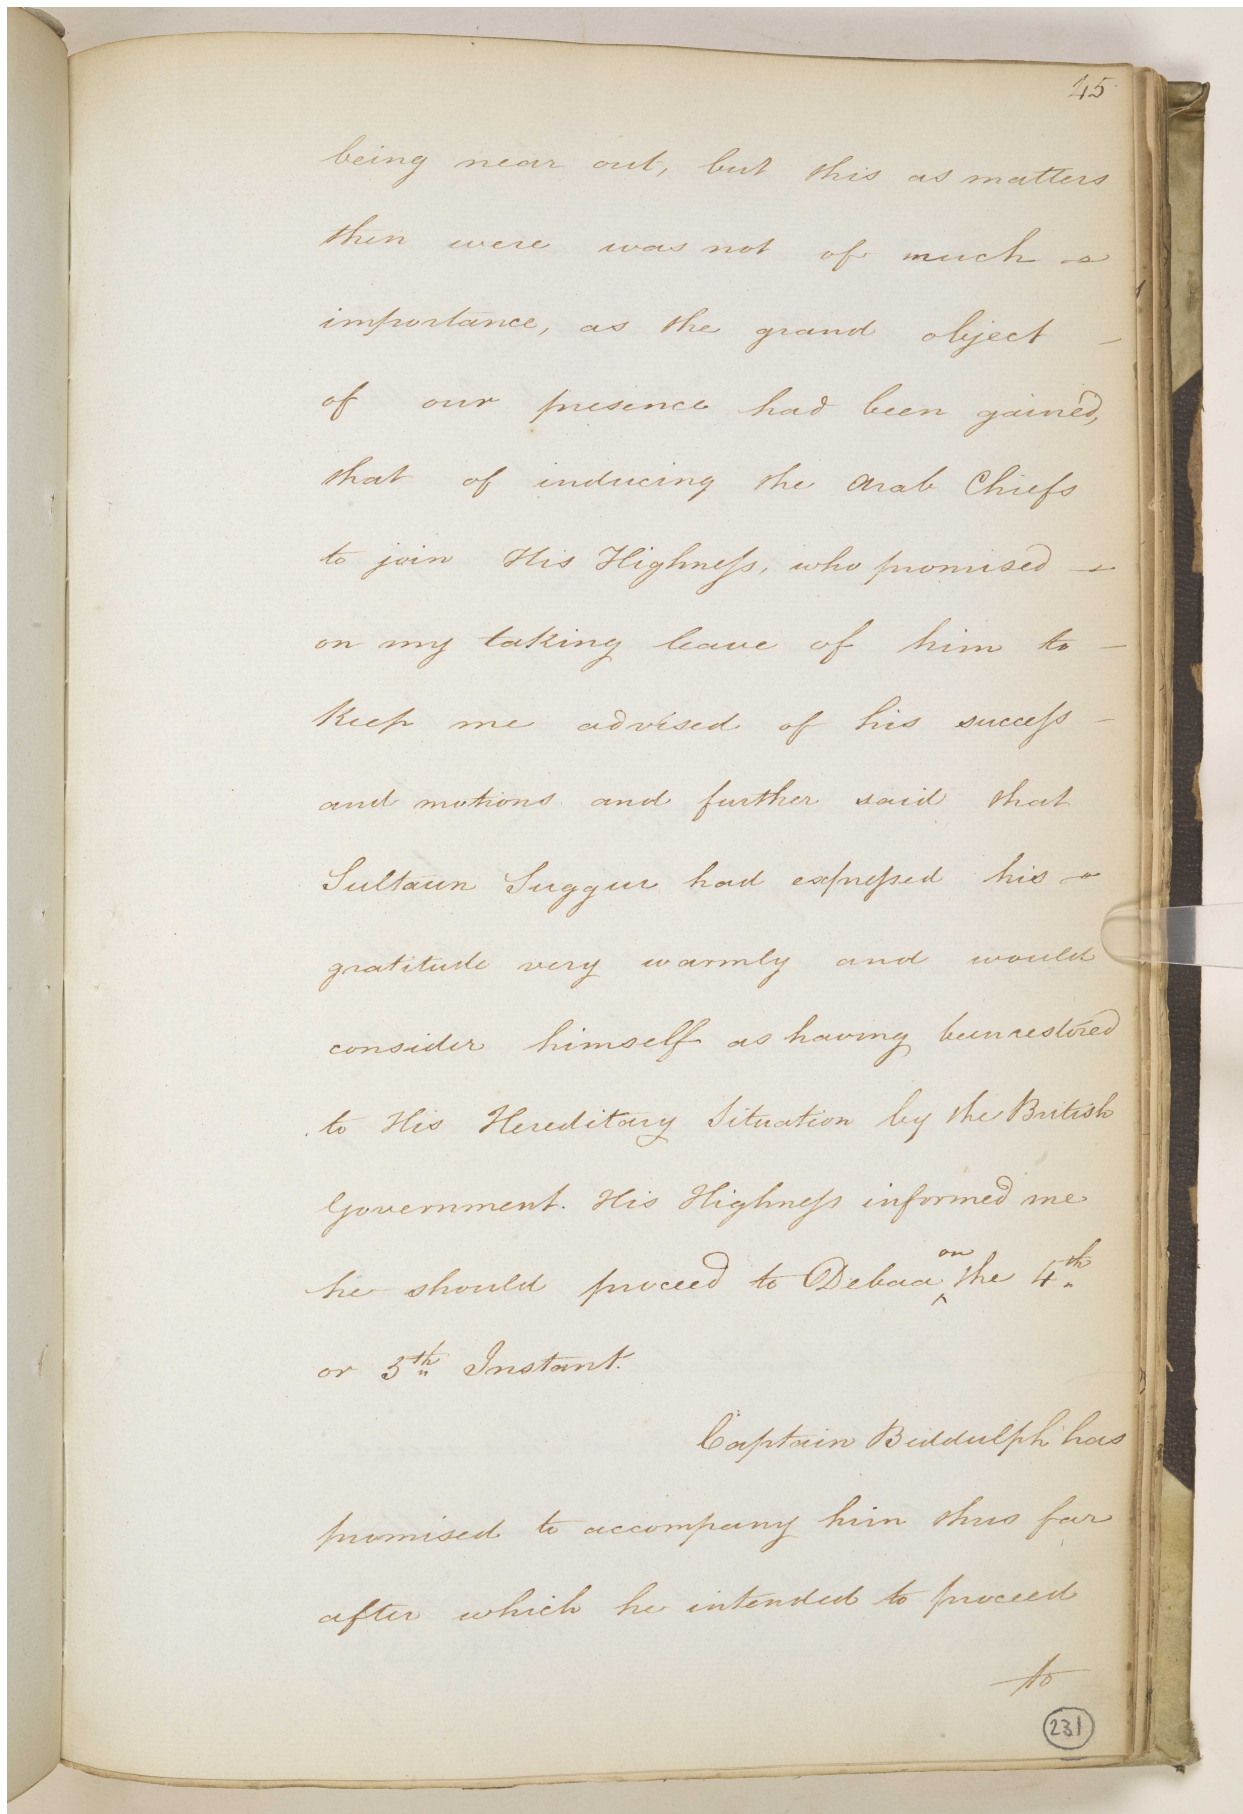 45
being near out, but this as matters
then were was not of much -
importance, as the grand object -
of our presence had been gained,
that of inducing the Arab Chiefs
to join His Highneſs, who promised -
on my taking leave of him to -
Keep me advised of his succeſs -
and motions and further said that
Sultaun Suggur had expreſsed his -
gratitude very warmly and would
consider himself as having been restored
to His Hereditary Situation by the British
Government. His Highneſs informed me
he should proceed to Debaa on the 4th
or 5th Instant.
Captain Biddulph has
promised to accompany him thus far
after which he intended to proceed
to
231